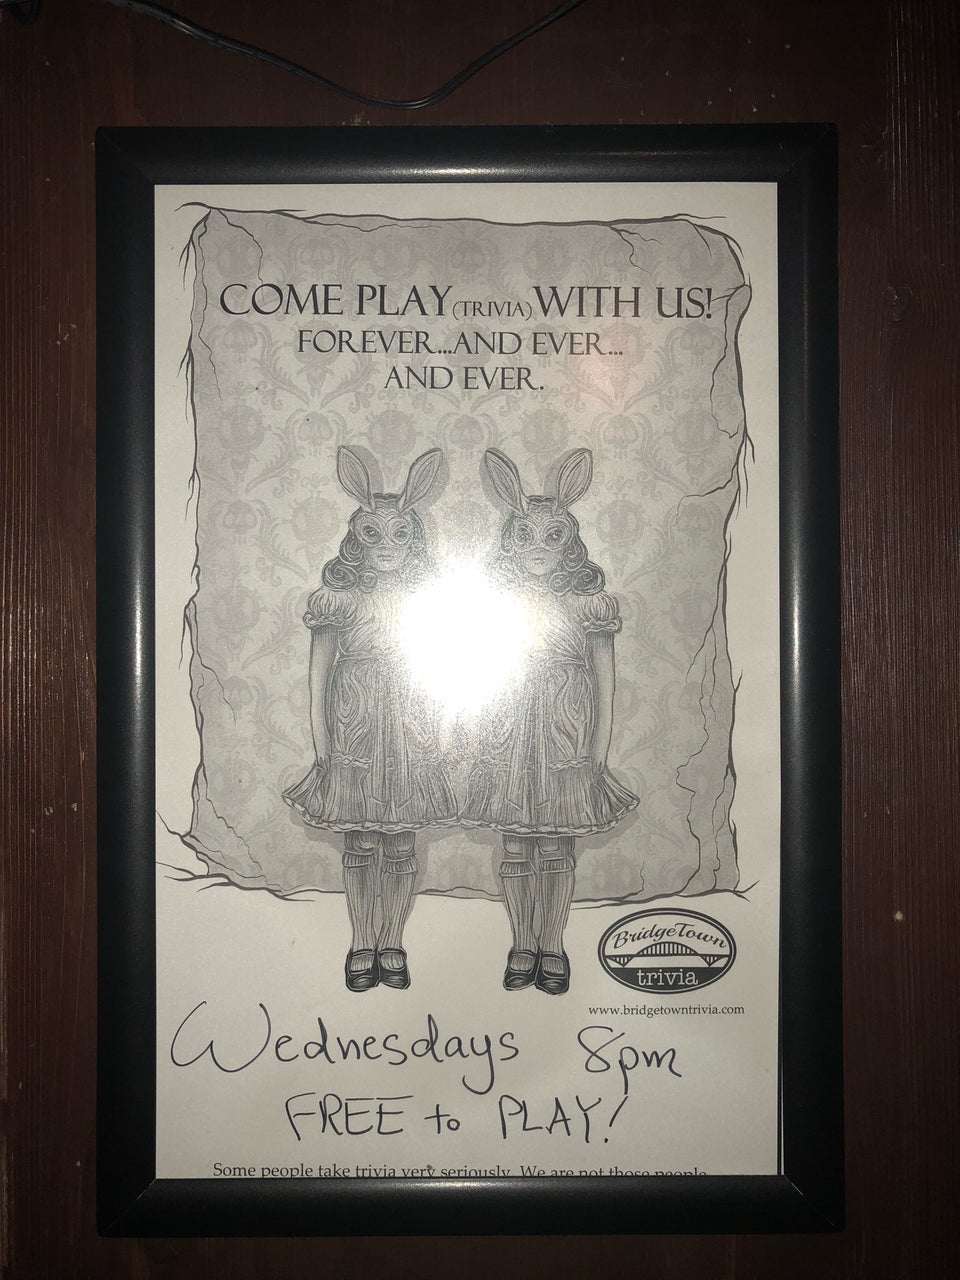 COME PLAY (TRIVIA) WITH US!
FOREVER...AND EVER...
AND EVER.
BridgeTown
trivia
www.bridgetowntrivia.com
Wednesdays 8pm
FREE to PLAY!
Some people take trivia very seriously. We are not those people.